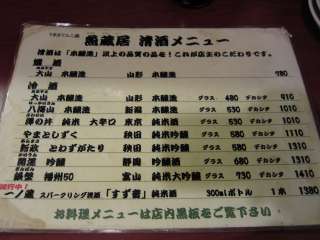 黒蔵居 清酒メニュー
清酒は「本醸造」以上の品質の品を!これが店主のこだわりです。
燗酒
大山 本醸造 山形 本醸造 780
冷酒
大山 本醸造 山形 本醸造 グラス 480 デカンタ 910
八海山 新潟 本醸造 グラス 530 デカンタ 1010
澤の井 純米 大辛口 東京 純米酒 グラス 530 デカンタ 1010
やまとしずく 秋田 純米吟醸 グラス 680 デカンタ 1310
新政 とわずがたり 秋田 純米吟醸 グラス 680 デカンタ 1310
開運 吟醸 静岡 吟醸酒 グラス 680 デカンタ 1310
播州50 富山 純米大吟醸 グラス 750 デカンタ 1450
一ノ蔵 スパークリング清酒「すず音」純米酒 300mlボトル 1本 1380
お料理メニューは店内黒板をご覧下さい